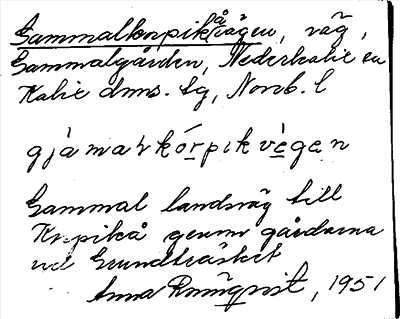 Gammalkorpikåvägen, väg,
Gammalgården, Nederkalix sn
Kalix dms. tg, Norrb. l
gjàmalkórpikvègen
Gammal landsväg till
Korpikå genom gårdarna
vid Grundträsket
Anna Rönnqvist, 1951